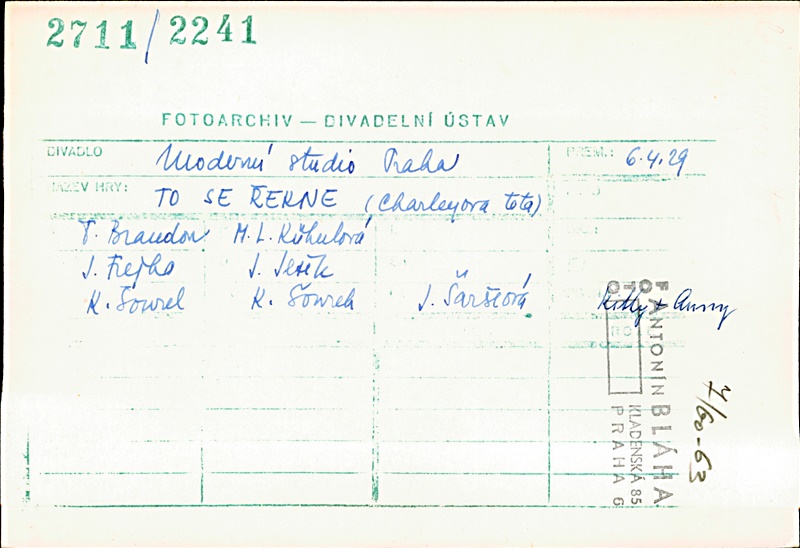 2711/2241
FOTOARCHIV — DIVADELNÍ ÚSTAV
DIVADLO Moderní studio Praha PREM.: 6.4.29
NÁZEV HRY: TO SE ŘEKNE (Charleyova teta)
T. Brandon M. L. Kühnlová
J. Frejka J. Ježek
K. Šourek K. Šourek J. Šaršeová Kitty + Anny
FOTO ANTONÍN BLÁHA
KLADENSKÁ 85
PRAHA 6
4/60-63